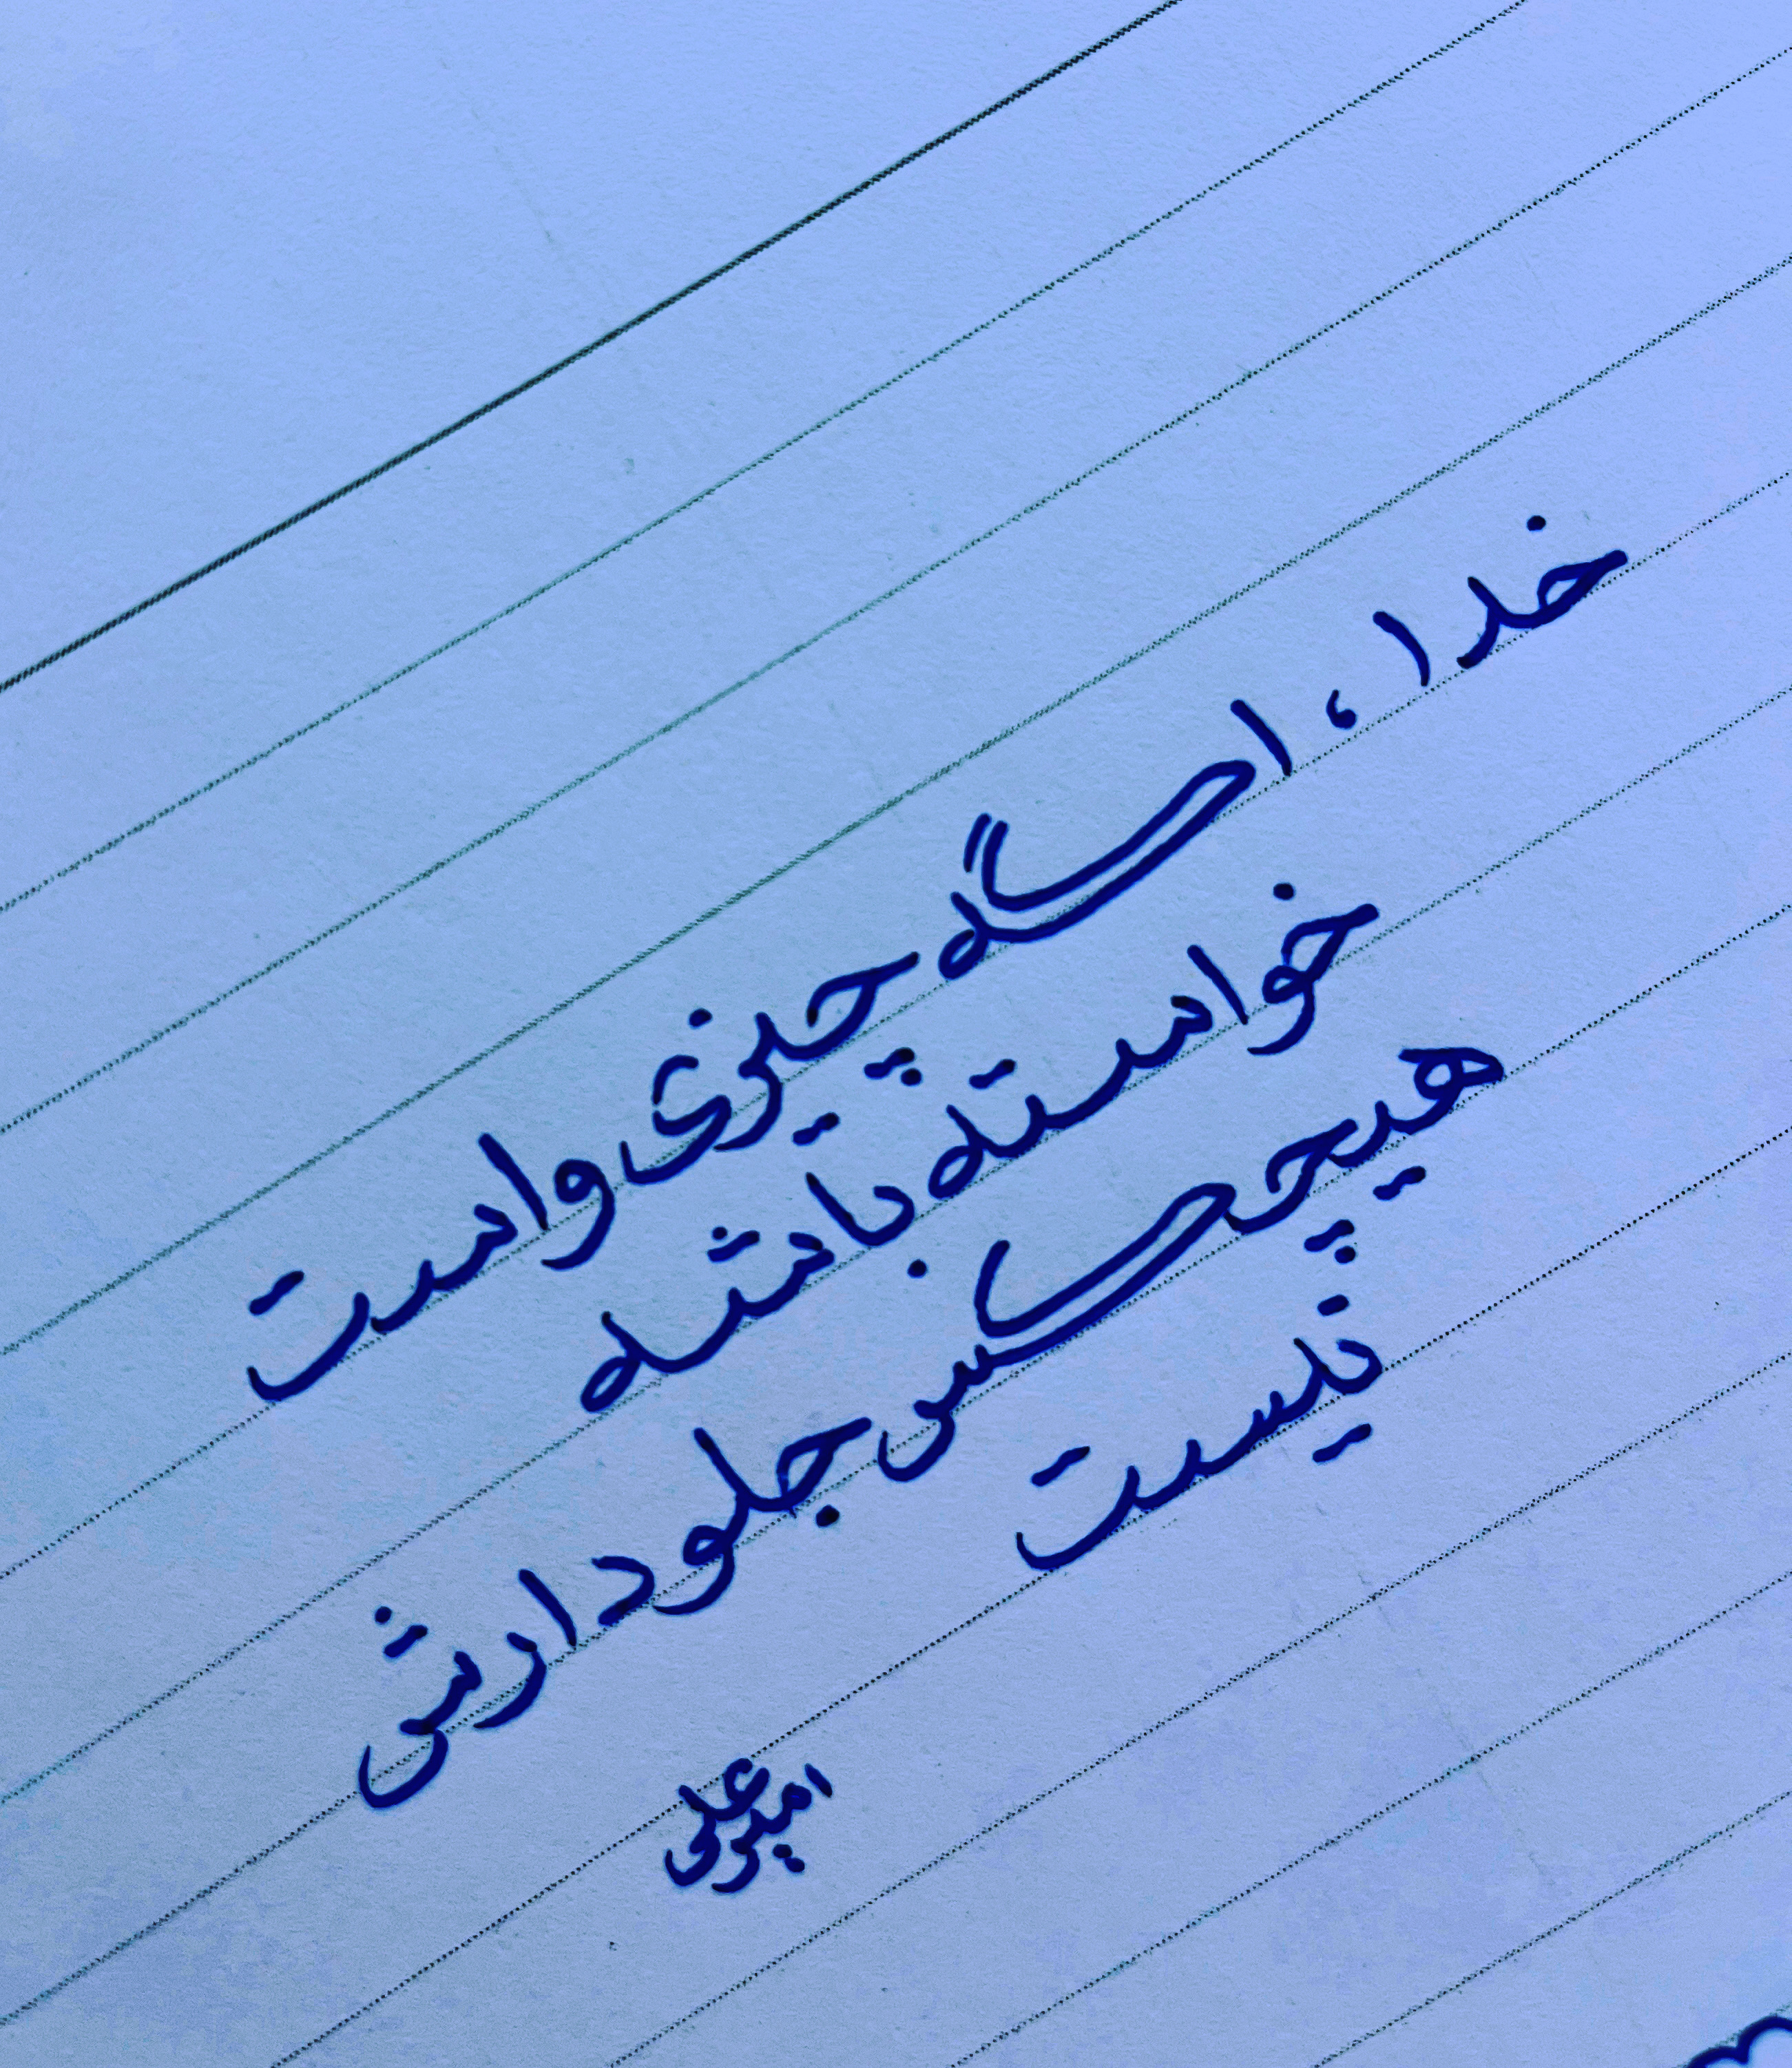 خدا، اگه چیزی واست
خواسته باشه
هیچکس جلودارش
نیست
امیرعلی